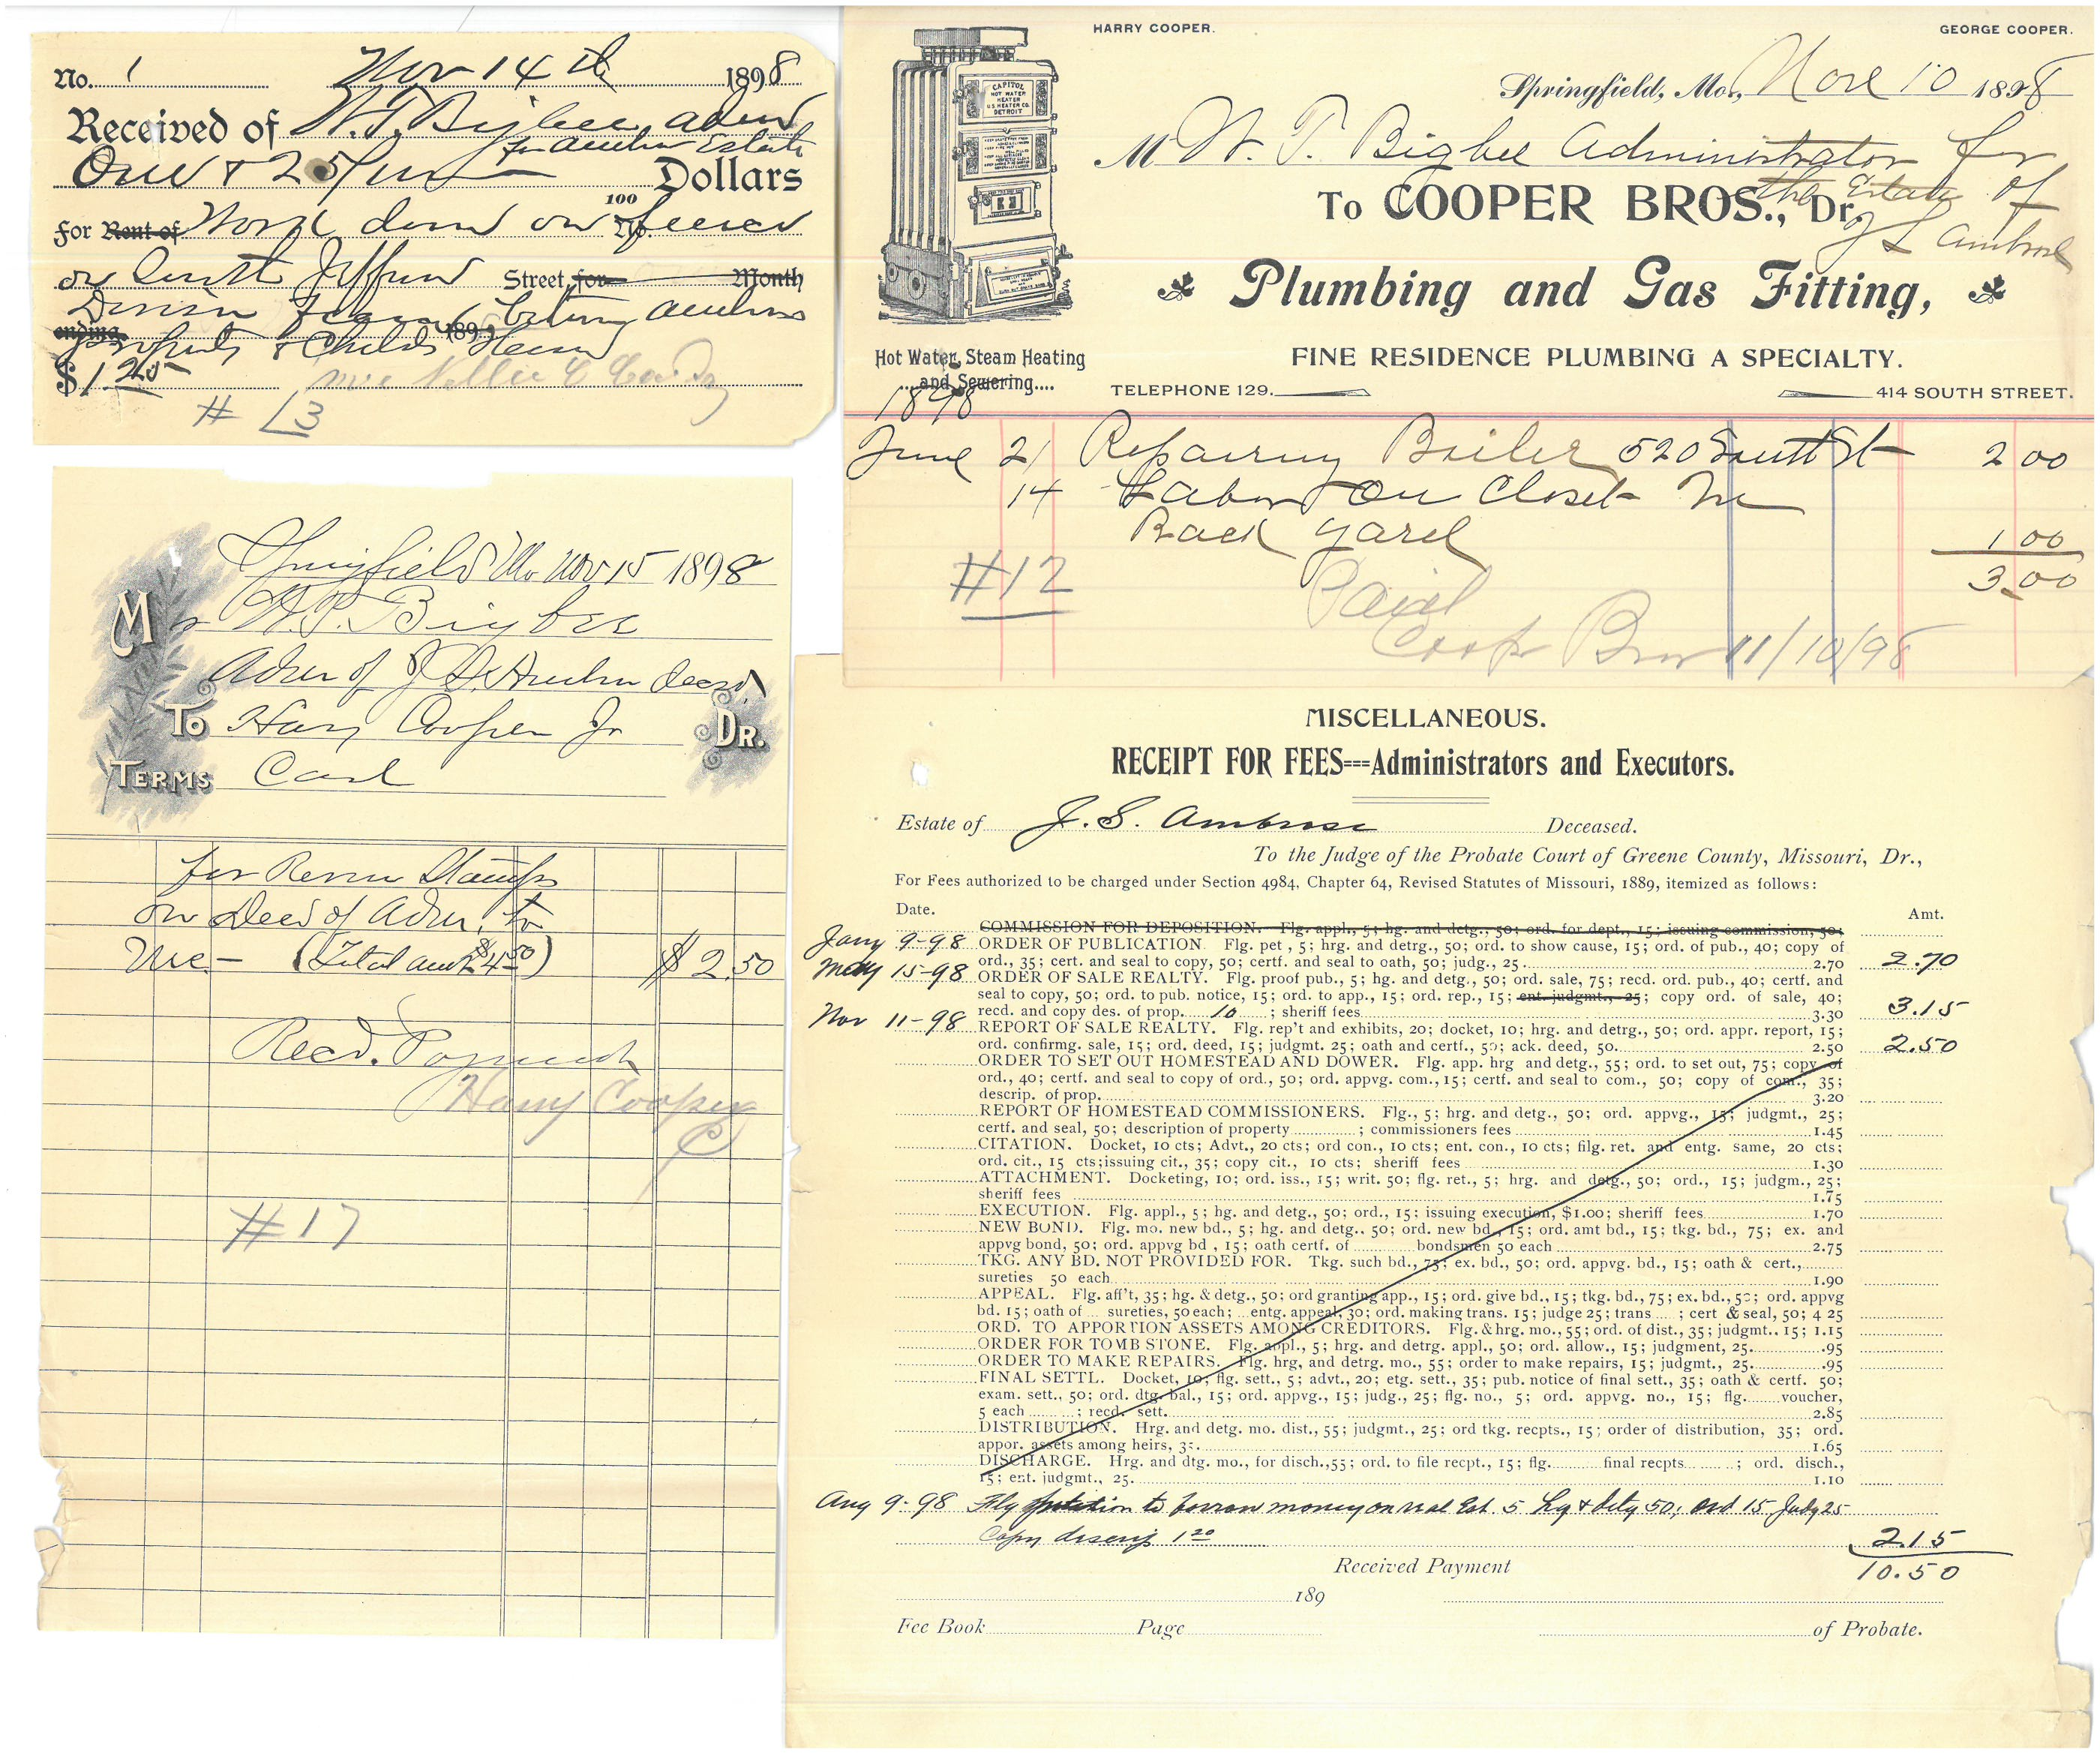 No. 1 Nov 14th 1898
Received of W. T. Bigbee, adm
for Estate
One & 25/100 Dollars
For Rent of Work done on No. fence
on South Jefferson Street, for Month
Division Fence
ending 189
property & Childs
$1.25 Nellie C
# 13
HARRY COOPER. GEORGE COOPER.
CAPITOL
HOT WATER
HEATER
U S HEATER CO.
DETROIT
Springfield, Mo., Nov 10 1898
M W. T. Bigbee Administrator for
the Estate of
To COOPER BROS., Dr.
J S Ambrose
Plumbing and Gas Fitting,
Hot Water, Steam Heating
....and Sewering....
FINE RESIDENCE PLUMBING A SPECIALTY.
TELEPHONE 129. 414 SOUTH STREET.
1898
June 21 Repairing Boiler 520 South St 2 00
14 Labor on Closet In
Back yard 1 00
3.00
#12 Paid
Coop Bros 11/10/98
Springfield Mo Nov 15 1898
Mr W. T. Bigbee
Admr of J S. decd
To Harry Cooper Jr Dr.
TERMS Cash
for Stamps
on Deed of Admr. to
me - (Total amt $4.50) $2.50
Recd. Payment
Harry Cooper
#17
MISCELLANEOUS.
RECEIPT FOR FEES---Administrators and Executors.
Estate of J. S. Ambrose Deceased.
To the Judge of the Probate Court of Greene County, Missouri, Dr.,
For Fees authorized to be charged under Section 4984, Chapter 64, Revised Statutes of Missouri, 1889, itemized as follows:
Date. Amt.
COMMISSION FOR DEPOSITION. Flg. appl., 5; hg. and detg., 50; ord. for dept., 15; issuing commission, 50;
Jany 9-98 ORDER OF PUBLICATION. Flg. pet., 5; hrg. and detrg., 50; ord. to show cause, 15; ord. of pub., 40; copy of
ord., 35; cert. and seal to copy, 50; certf. and seal to oath, 50; judg., 25 2.70 2.70
May 15-98 ORDER OF SALE REALTY. Flg. proof pub., 5; hg. and detg., 50; ord. sale, 75; recd. ord. pub., 40; certf. and
seal to copy, 50; ord. to pub. notice, 15; ord. to app., 15; ord. rep., 15; ent. judgmt., 25; copy ord. of sale, 40;
recd. and copy des. of prop. 10 ; sheriff fees 3.30 3.15
Nov 11-98 REPORT OF SALE REALTY. Flg. rep't and exhibits, 20; docket, 10; hrg. and detrg., 50; ord. appr. report, 15;
ord. confirmg. sale, 15; ord. deed, 15; judgmt. 25; oath and certf., 50; ack. deed, 50. 2.50 2.50
ORDER TO SET OUT HOMESTEAD AND DOWER. Flg. app. hrg and detg., 55; ord. to set out, 75; copy of
ord., 40; certf. and seal to copy of ord., 50; ord. appvg. com., 15; certf. and seal to com., 50; copy of com., 35;
descrip. of prop. 3.20
REPORT OF HOMESTEAD COMMISSIONERS. Flg., 5; hrg. and detg., 50; ord. appvg., 15; judgmt., 25;
certf. and seal, 50; description of property ; commissioners fees 1.45
CITATION. Docket, 10 cts; Advt., 20 cts; ord con., 10 cts; ent. con., 10 cts; filg. ret. and entg. same, 20 cts;
ord. cit., 15 cts; issuing cit., 35; copy cit., 10 cts; sheriff fees 1.30
ATTACHMENT. Docketing, 10; ord. iss., 15; writ. 50; flg. ret., 5; hrg. and detg., 50; ord., 15; judgm., 25;
sheriff fees 1.75
EXECUTION. Flg. appl., 5; hg. and detg., 50; ord., 15; issuing execution, $1.00; sheriff fees 1.70
NEW BOND. Flg. mo. new bd., 5; hg. and detg.. 50; ord. new bd., 15; ord. amt bd., 15; tkg. bd., 75; ex. and
appvg bond, 50; ord. appvg bd , 15; oath certf. of bondsmen 50 each 2.75
TKG. ANY BD. NOT PROVIDED FOR. Tkg. such bd., 75; ex. bd., 50; ord. appvg. bd., 15; oath & cert.,
sureties 50 each 1.90
APPEAL. Flg. aff't, 35; hg. & detg., 50; ord granting app., 15; ord. give bd., 15; tkg. bd., 75; ex. bd., 50; ord. appvg
bd. 15; oath of sureties, 50 each; entg. appeal, 30; ord. making trans. 15; judge 25; trans ; cert & seal, 50; 4 25
ORD. TO APPORTION ASSETS AMONG CREDITORS. Flg. & hrg. mo., 55; ord. of dist., 35; judgmt.. 15; 1.15
ORDER FOR TOMB STONE. Flg. appl., 5; hrg. and detrg. appl., 50; ord. allow., 15; judgment, 25. .95
ORDER TO MAKE REPAIRS. Flg. hrg, and detrg. mo., 55; order to make repairs, 15; judgmt., 25. .95
FINAL SETTL. Docket, 10; flg. sett., 5; advt., 20; etg. sett., 35; pub. notice of final sett., 35; oath & certf. 50;
exam. sett., 50; ord. dtg. bal., 15; ord. appvg., 15; judg., 25; flg. no., 5; ord. appvg. no., 15; flg. voucher,
5 each ; recd. sett. 2.85
DISTRIBUTION. Hrg. and detg. mo. dist., 55; judgmt., 25; ord tkg. recpts., 15; order of distribution, 35; ord.
appor. assets among heirs, 35. 1.65
DISCHARGE. Hrg. and dtg. mo., for disch., 55; ord. to file recpt., 15; flg. final recpts ; ord. disch.,
15; ent. judgmt., 25. 1.10
Aug 9-98 Flg petition to borrow money on real Est. 5 hg & detg 50; ord 15 Judg 25
Copy 1 20 2.15
Received Payment 10.50
189
Fee Book Page of Probate.